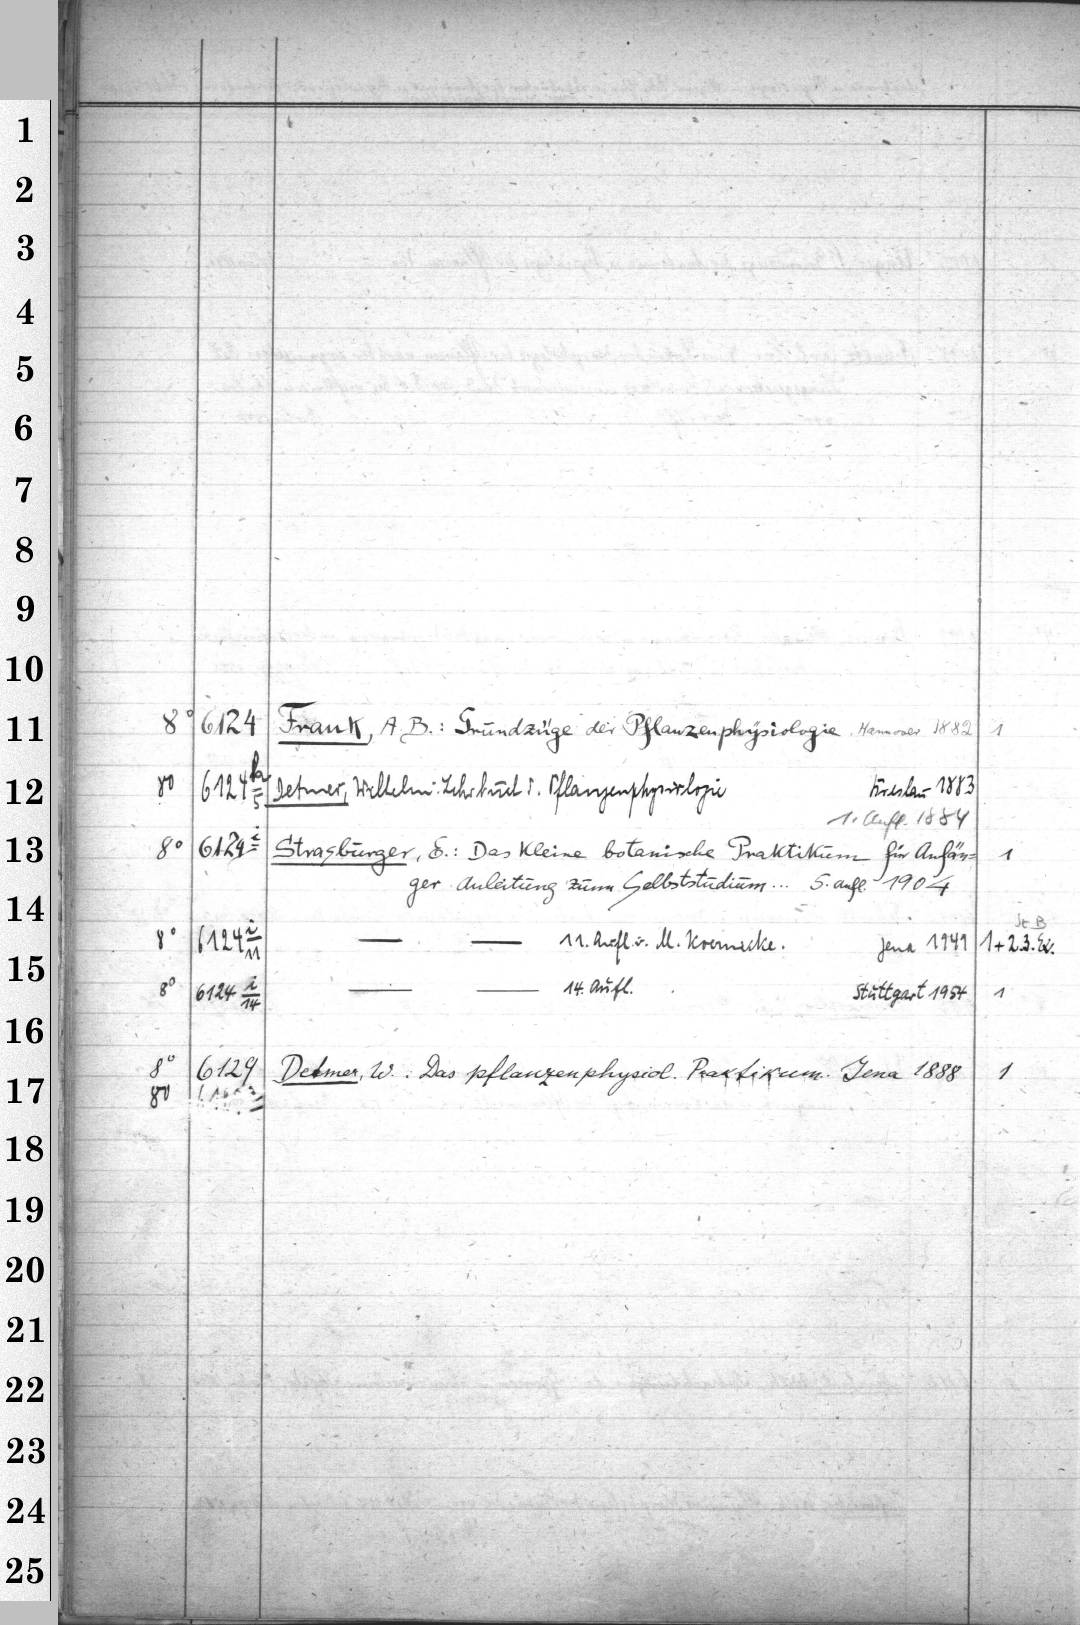 1
2
3
4
5
6
7
8
9
10
11 8° 6124 Frank, A. B.: Grundzüge der Pflanzenphysiologie. Hannover 1882 1
12 8° 6124 Detmer, Wilhelm: Lehrbuch d. Pflanzenphysiologie Breslau 1883
1. Aufl. 1884
13 8° 6124 i Strasburger, E.: Das kleine botanische Praktikum für Anfän= 1
ger Anleitung zum Selbststudium... 5. Aufl. 1904
14
8° 6124 i/11 — — 11. Aufl. v. M. Koernicke. Jena 1949 1+2.3. Ex.
15
8° 6124 i/14 — — 14. Aufl. Stuttgart 1954 1
16
8° 6129 Detmer, W.: Das pflanzenphysiol. Praktikum. Jena 1888 1
17 8°
18
19
20
21
22
23
24
25